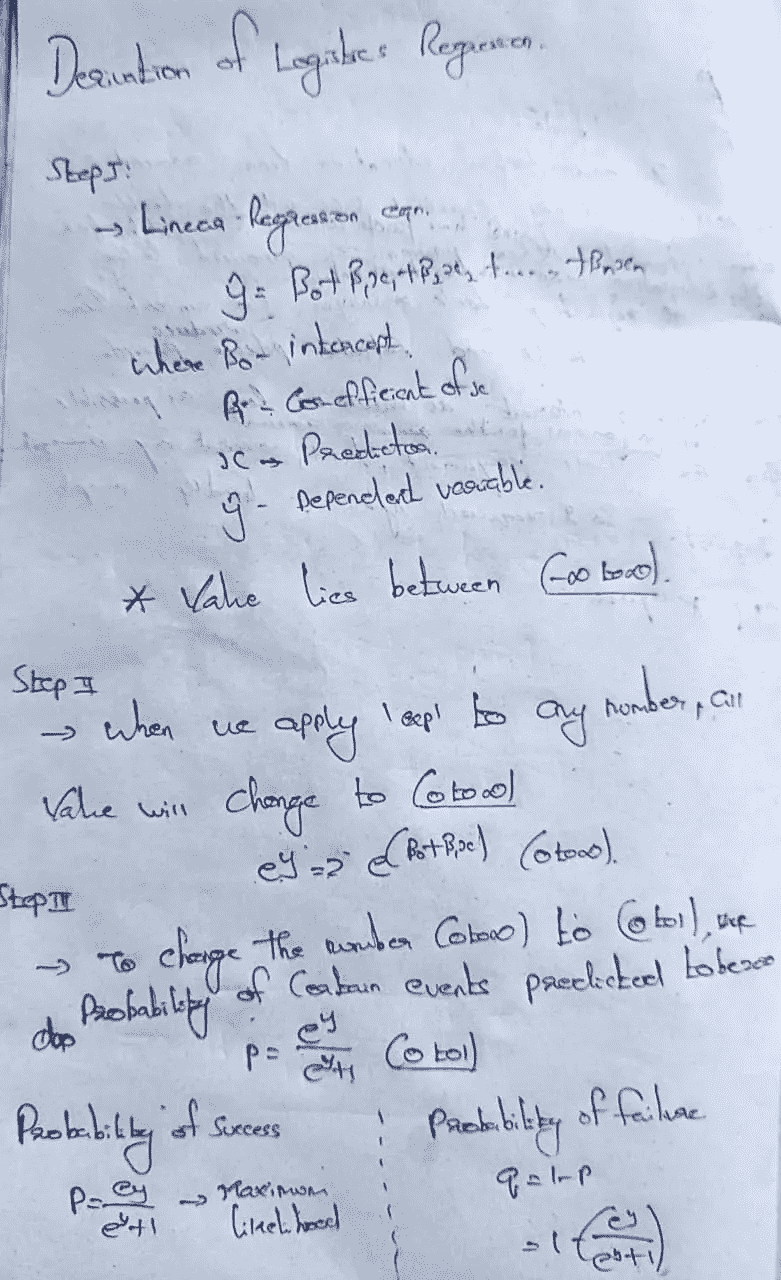 Derivation of Logistics Regression.
Step I:
→ Linear Regression eqn.
ŷ = β₀+β₁x₁+β₂x₂+.....+βₙxₙ
where β₀ - intercept.
β₁ - Co-efficient of x
x → Predictor.
ŷ - Dependent variable.
* Value lies between (-∞ to ∞).
Step II
→ when we apply 'exp' to any number, all
Value will change to (0 to ∞)
e^y => e^(β₀+β₁x) (0 to ∞).
Step III
→ To change the number (0 to ∞) to (0 to 1), we
do Probability of Certain events predicted to be
p = e^y/(e^y+1) (0 to 1)
Probability of Success
P = e^y/(e^y+1) → Maximum
likelihood
Probability of failure
q = 1-P
= 1-(e^y/(e^y+1))